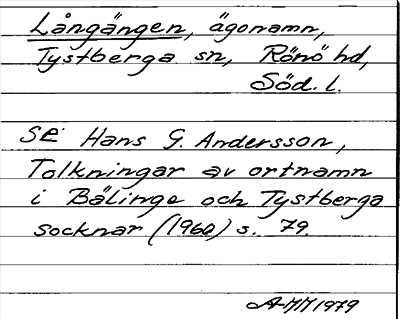 Långängen, ägonamn,
Tystberga sn, Rönö hd,
Söd. l.
se Hans G. Andersson,
Tolkningar av ortnamn
i Bälinge och Tystberga
socknar (1960) s. 79.
AMM 1979